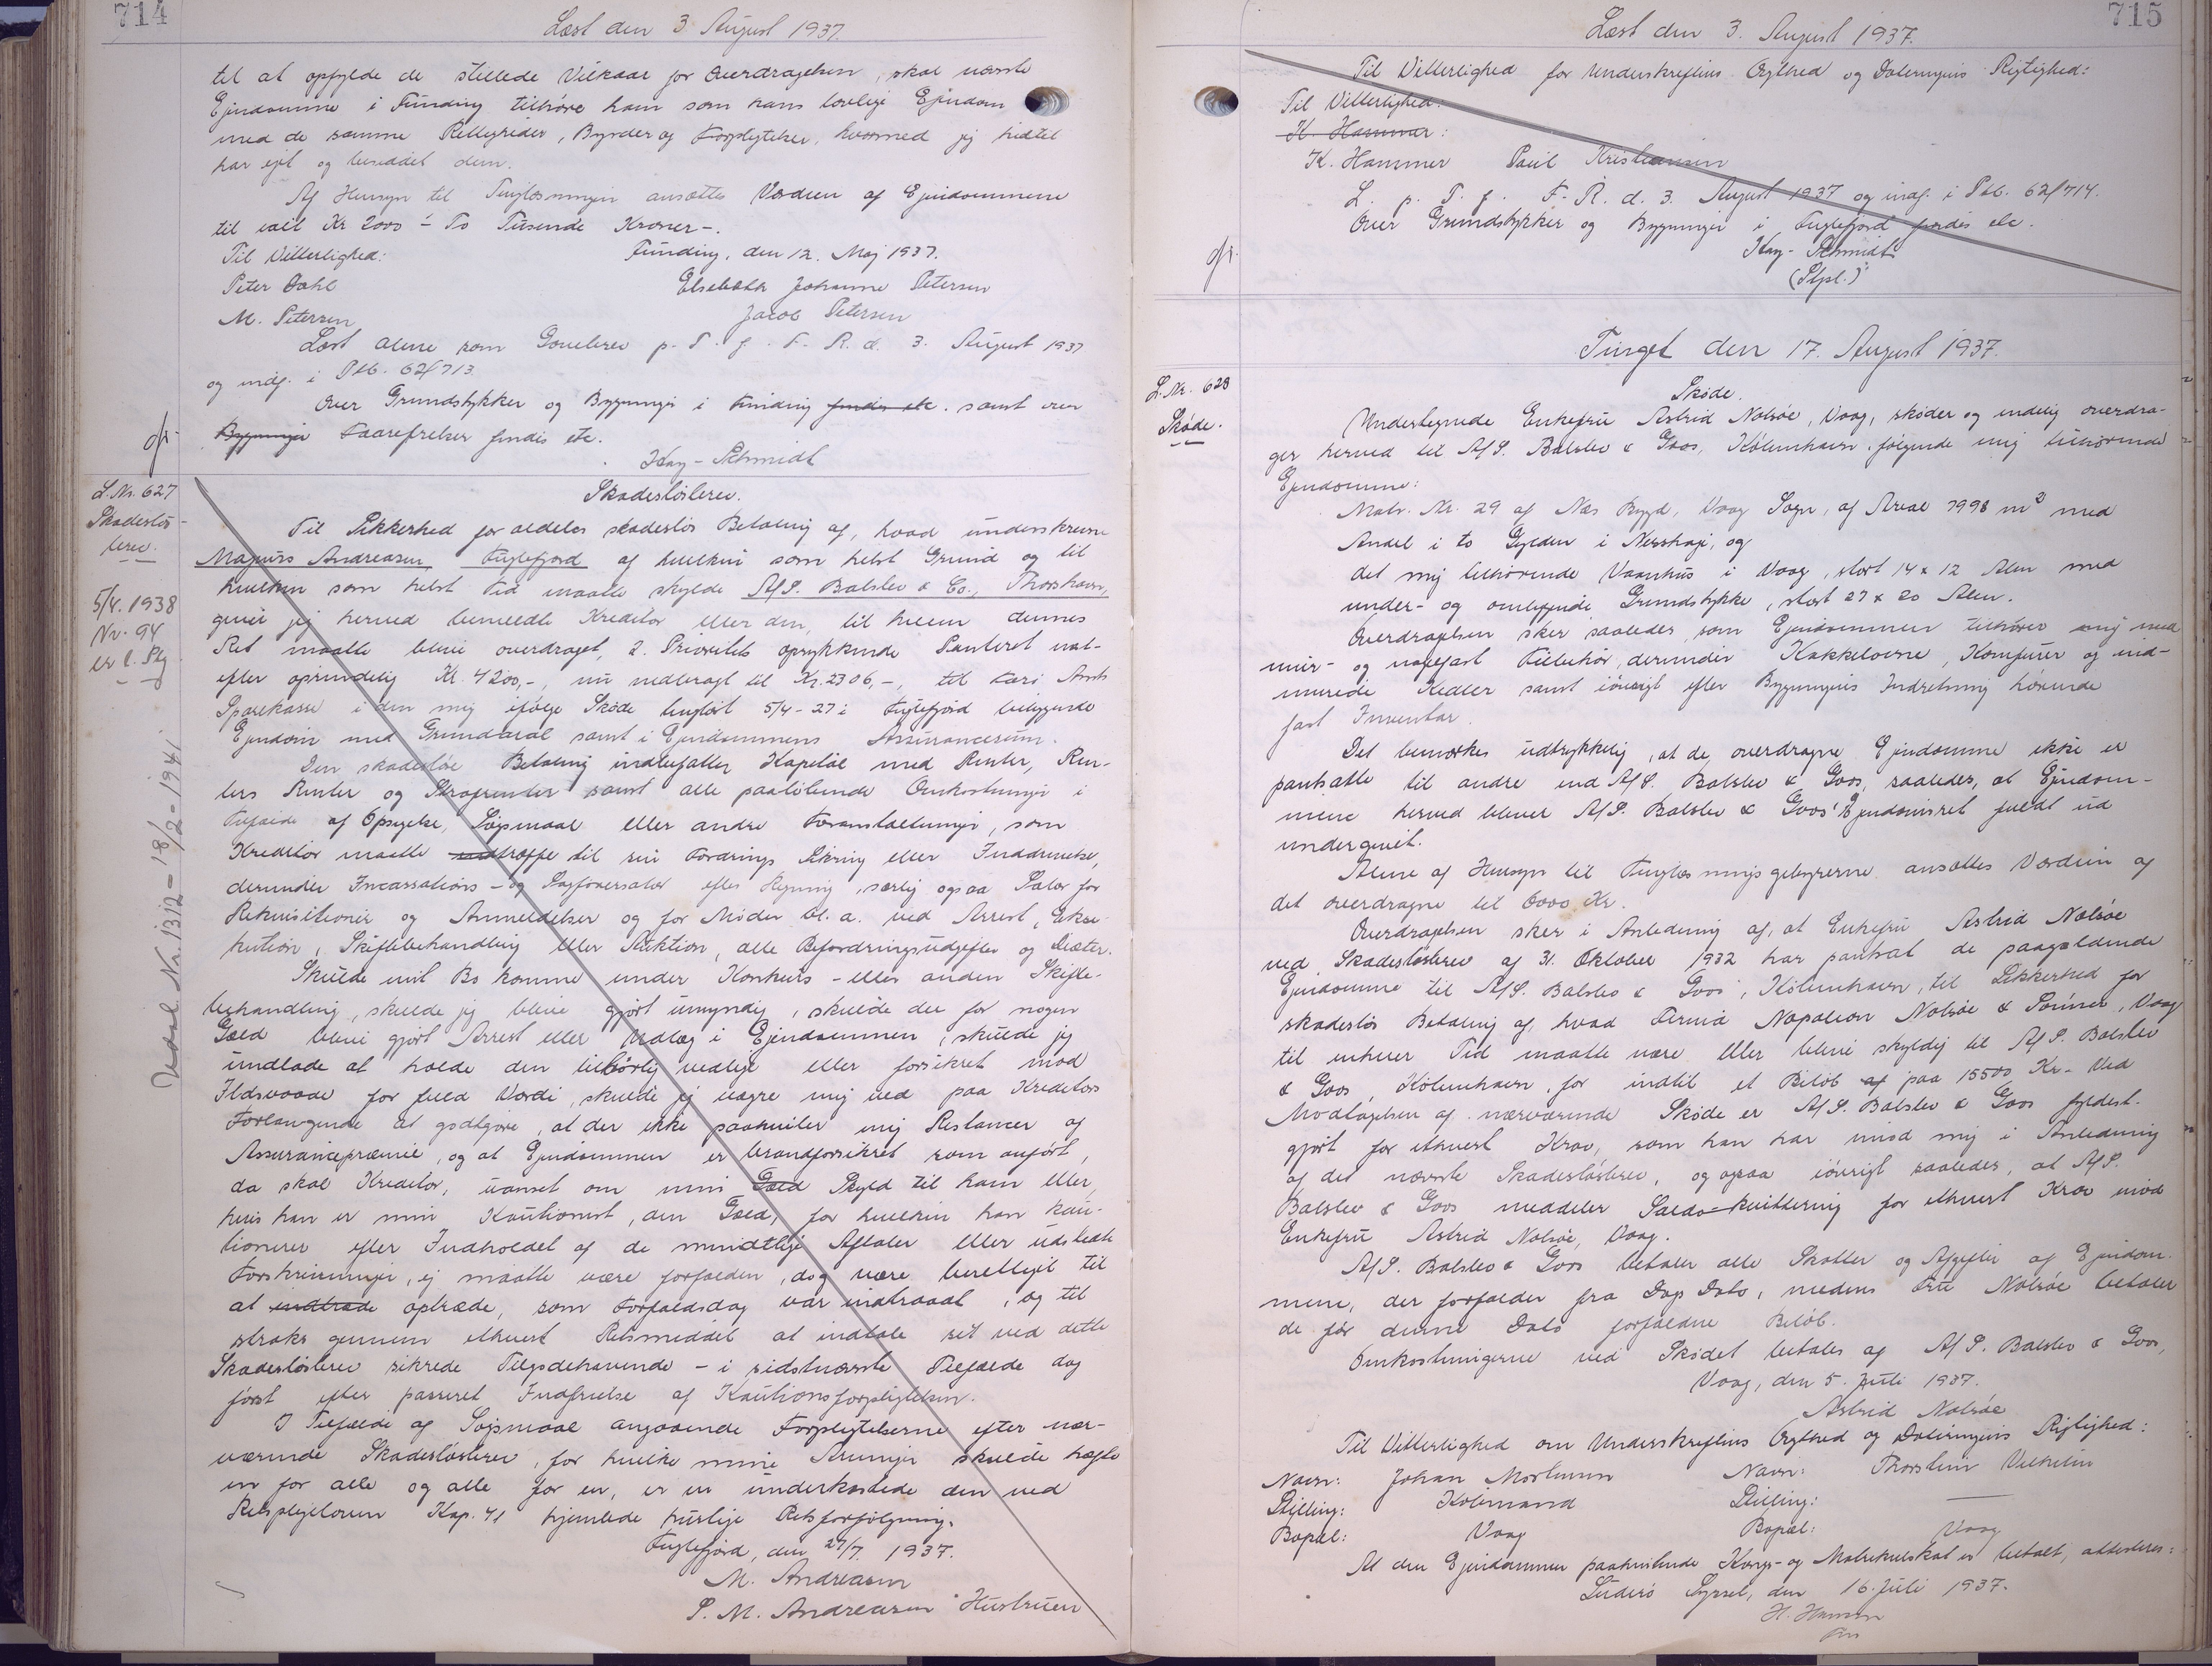 714
Læst den 3 August 1937.
til at opfylde de stillede Vilkaar for Overdragelsen, skal nævnte
Ejendomme i Funding tilhøre ham som hans lovlige Ejendom
med de samme Rettigheder, Byrder og Forpligtelser, hvormed jeg hidtil
har ejet og besiddet dem.
Af Hensyn til Tinglæsningen ansættes Værdien af Ejendommene
til ialt Kr 2000 - To Tusende Kroner -.
Til Vitterlighed: Funding, den 12. Maj 1937.
Peter Dahl Elsebeth Johanne Petersen
M. Petersen Jacob Petersen
Læst alene som Gavebrev p. T. f. F. R. d. 3. August 1937
og indf. i Ptb. 62/713
Over Grundstykker og Bygninger i Funding findes etc. samt over
Bygninger Faarefreker findes etc.
Kay-Schmidt
L. Nr. 627
Skadesløs-
brev.
5/4. 1938
Nr. 94
er l. Ptg
Udsl. Nr. 1312 - 18/2 - 1941
Skadesløsbrev.
Til Sikkerhed for aldeles skadesløs Betaling af, hvad underskrevne
Magnus Andreasen Fuglefjord af hvilken som helst Grund og til
hvilken som helst Tid maatte skylde A/S. Balslev & Co., Thorshavn,
giver jeg herved bemeldte Kreditor eller den, til hvem dennes
Ret maatte blive overdraget, 2. Prioritets oprykkende Panteret næst-
efter oprindelig Kr. 4200,-, nu nedbragt til Kr. 2306,-, til Færø Amts
Sparekasse i den mig ifølge Skøde tinglæst 5/4-27 i Fuglefjord beliggende
Ejendom med Grundareal samt i Ejendommens Assurancesum.
Den skadesløse Betaling indbefatter Kapital med Renter, Ren-
ters Renter og Strafrenter samt alle paaløbende Omkostninger i
Tilfælde af Opsigelse, Søgsmaal eller andre Foranstaltninger, som
Kreditor maatte træffe til sin Fordrings Sikring eller Inddrivelse,
derunder Incassations- og Sagførersalær efter Regning, særlig ogsaa Salær for
Rekvisitioner og Anmeldelser og for Møder bl. a. ved Arrest, Ekse-
kution, Skiftebehandling eller Auktion, alle Befordringsudgifter og Diæter.
Skulde mit Bo komme under Konkurs- eller anden Skifte-
behandling, skulde jeg blive gjort umyndig, skulde der for nogen
Gæld blive gjort Arrest eller Udlæg i Ejendommen, skulde jeg
undlade at holde den tilbørlig vedlige eller forsikret mod
Ildsvaade for fuld Værdi, skulde jeg vægre mig ved paa Kreditors
Forlangende at godtgøre, at der ikke paahviler mig Restancer af
Assurancepræmie, og at Ejendommen er brandforsikret som anført,
da skal Kreditor, uanset om min Gæld Skyld til ham eller,
hvis han er min Kautionist, den Gæld, for hvilken han kau-
tionerer efter Indholdet af de mundtlige Aftaler eller udstedte
Forskrivninger, ej maatte være forfalden, dog være berettiget til
at indtræde optræde, som Forfaldsdag var indtraadt, og til
straks gennem ethvert Retsmiddel at indtale sit ved dette
Skadesløsbrev sikrede Tilgodehavende - i sidstnævnte Tilfælde dog
først efter passeret Indfrielse af Kautionsforpligtelsen.
I Tilfælde af Søgsmaal angaaende Forpligtelserne efter nær-
værende Skadesløsbrev, for hvilke mine Arvinger skulde hæfte
en for alle og alle for en, er en underkastede den ved
Retsplejeloven Kap. 41 hjemlede hurtige Retsforfølgning.
Fuglefjord, den 27/7. 1937.
M. Andreasen
S. M. Andreasen Hustruen
715
Læst den 3. August 1937.
Til Vitterlighed for Underskriftens Ægthed og Dateringens Rigtighed:
Til Vitterlighed:
K. Hammer:
K. Hammer Poul Kristiansen
L. p. T. f. F. R. d. 3. August 1937 og indf. i Ptb. 62/714.
Over Grundstykker og Bygninger i Fuglefjord findes etc.
Kay-Schmidt
(Stpl.)
Tinget den 17. August 1937.
L. Nr. 628
Skøde.
Skøde.
Undertegnede Enkefru Astrid Nolsøe, Vaag, skøder og endelig overdra-
ger herved til A/S. Balslev & Goos, København, følgende mig tilhørende
Ejendomme:
Matr. Nr. 29 af Næs Bygd, Vaag Sogn, af Areal 7998 m² med
Andel i to Gylden i Nesshagi, og
det mig tilhørende Vaanhus i Vaag, stort 14 x 12 Alen med
under- og omliggende Grundstykke, stort 27 x 20 Alen.
Overdragelsen sker saaledes, som Ejendommen tilhører mig med
mur- og nagelfast Tilbehør, derunder Kakkelovne, Komfurer og ind-
murede Kedler samt iøvrigt efter Bygningens Indretning hørende
fast Inventar.
Det bemærkes udtrykkelig, at de overdragne Ejendomme ikke er
pantsatte til andre end A/S. Balslev & Goos, saaledes, at Ejendom-
mene herved bliver A/S. Balslev & Goos' Ejendomsret fuldt ud
undergivet.
Alene af Hensyn til Tinglæsningsgebyrerne ansættes Værdien af
det overdragne til 6000 Kr.
Overdragelsen sker i Anledning af, at Enkefru Astrid Nolsøe
ved Skadesløsbrev af 31. Oktober 1932 har pantsat de paagældende
Ejendomme til A/S. Balslev & Goos, København, til Sikkerhed for
skadesløs Betaling af, hvad Firma Napoleon Nolsøe & Sønner, Vaag
til enhver Tid maatte være eller blive skyldig til A/S. Balslev
& Goos, København, for indtil et Beløb af paa 15500 Kr. - Ved
Modtagelsen af nærværende Skøde er A/S. Balslev & Goos fyldest-
gjort for ethvert Krav, som han har imod mig i Anledning
af det nævnte Skadesløsbrev, og ogsaa iøvrigt saaledes, at A/S.
Balslev & Goos meddeler Saldo-kvittering for ethvert Krav mod
Enkefru Astrid Nolsøe, Vaag.
A/S. Balslev & Goos betaler alle Skatter og Afgifter af Ejendom-
mene, der forfalder fra Dags Dato, medens Fru Nolsøe betaler
de før denne Dato forfaldne Beløb.
Omkostningerne ved Skødet betales af A/S. Balslev & Goos,
Vaag, den 5. Juli 1937.
Astrid Nolsøe
Til Vitterlighed om Underskriftens Ægthed og Dateringens Rigtighed:
Navn: Johan Mortensen Navn: Thorstein Vilhelm
Stilling: Købmand Stilling: —
Bopæl: Vaag Bopæl: Vaag
At den Ejendommen paahvilende Kongs- og Matrikulskat er betalt, attesteres:
Suderø Syssel, den 16. Juli 1937.
H. Hansen